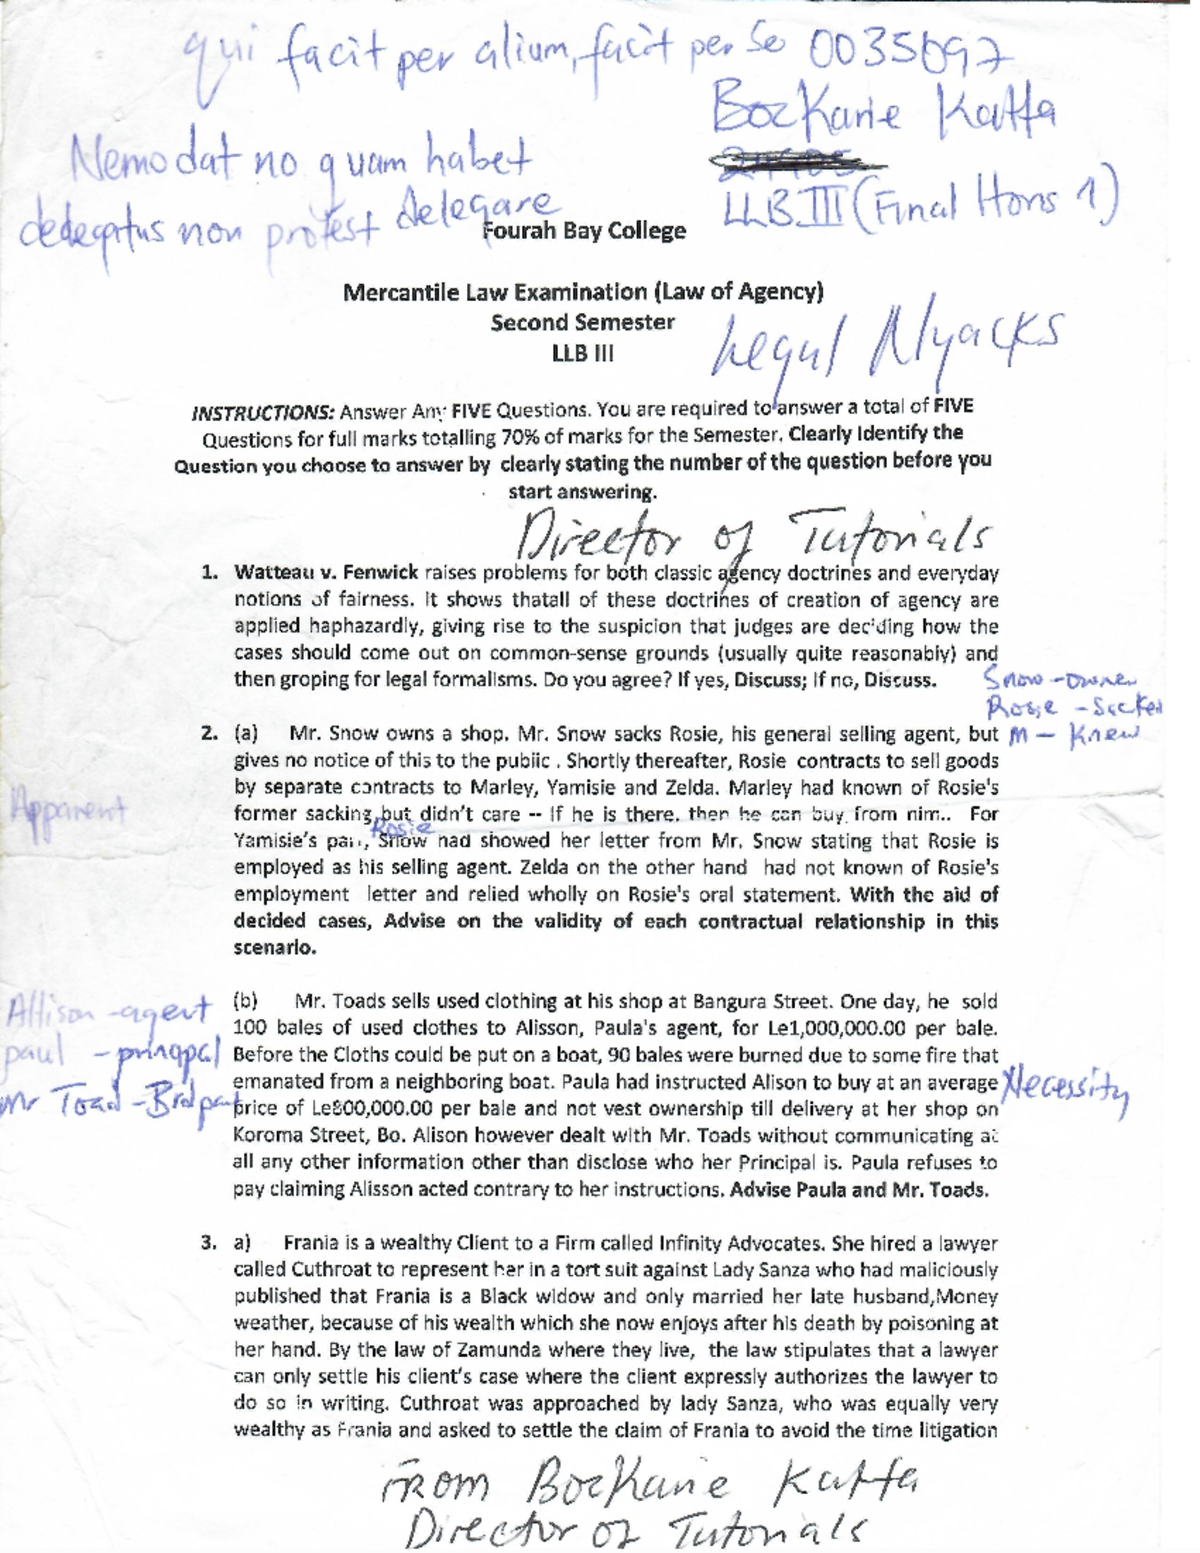 qui facit per alium, facit per se 0035697
Bockarie Kaffa
Nemo dat no quam habet
dedegatus non protest delegare
LLB III (Final Hons 1)
Fourah Bay College
Mercantile Law Examination (Law of Agency)
Second Semester
LLB III
Legal Nyacks
INSTRUCTIONS: Answer Any FIVE Questions. You are required to answer a total of FIVE
Questions for full marks totalling 70% of marks for the Semester. Clearly Identify the
Question you choose to answer by clearly stating the number of the question before you
start answering.
Director of Tutorials
1. Watteau v. Fenwick raises problems for both classic agency doctrines and everyday
notions of fairness. It shows thatall of these doctrines of creation of agency are
applied haphazardly, giving rise to the suspicion that judges are deciding how the
cases should come out on common-sense grounds (usually quite reasonably) and
then groping for legal formalisms. Do you agree? If yes, Discuss; If no, Discuss.
Snow - owner
Rosie - Sacked
M - Knew
2. (a) Mr. Snow owns a shop. Mr. Snow sacks Rosie, his general selling agent, but
gives no notice of this to the public . Shortly thereafter, Rosie contracts to sell goods
by separate contracts to Marley, Yamisie and Zelda. Marley had known of Rosie's
Apparent
former sacking but didn't care -- If he is there, then he can buy from him.. For
Rosie
Yamisie's part, Snow had showed her letter from Mr. Snow stating that Rosie is
employed as his selling agent. Zelda on the other hand had not known of Rosie's
employment letter and relied wholly on Rosie's oral statement. With the aid of
decided cases, Advise on the validity of each contractual relationship in this
scenario.
Allison - agent
paul - principal
Mr Toad - 3rd part
(b) Mr. Toads sells used clothing at his shop at Bangura Street. One day, he sold
100 bales of used clothes to Alisson, Paula's agent, for Le1,000,000.00 per bale.
Before the Cloths could be put on a boat, 90 bales were burned due to some fire that
emanated from a neighboring boat. Paula had instructed Alison to buy at an average
Necessity
price of Le800,000.00 per bale and not vest ownership till delivery at her shop on
Koroma Street, Bo. Alison however dealt with Mr. Toads without communicating at
all any other information other than disclose who her Principal is. Paula refuses to
pay claiming Alisson acted contrary to her instructions. Advise Paula and Mr. Toads.
3. a) Frania is a wealthy Client to a Firm called Infinity Advocates. She hired a lawyer
called Cuthroat to represent her in a tort suit against Lady Sanza who had maliciously
published that Frania is a Black widow and only married her late husband,Money
weather, because of his wealth which she now enjoys after his death by poisoning at
her hand. By the law of Zamunda where they live, the law stipulates that a lawyer
can only settle his client's case where the client expressly authorizes the lawyer to
do so in writing. Cuthroat was approached by lady Sanza, who was equally very
wealthy as Frania and asked to settle the claim of Frania to avoid the time litigation
FROM Bockarie Kaffa
Director of Tutorials